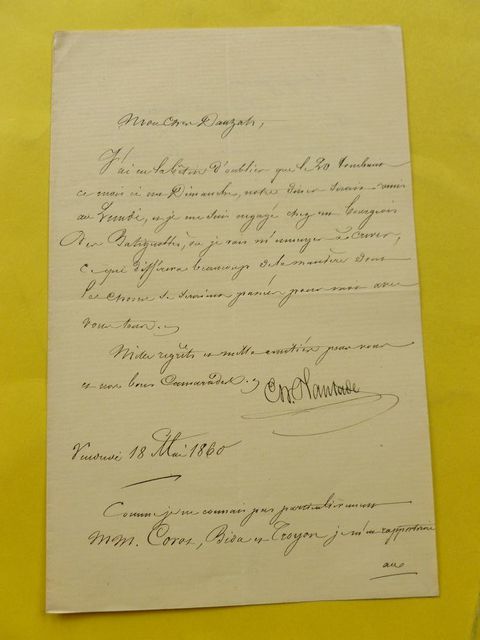 Mon cher Dauzats,
J'ai eu la bêtise d'oublier que le 20 tombant
ce mois ci un Dimanche, notre diner serait remis
au Lundi, et je me suis engagé chez un bourgeois
des Batignolles, où je vais m'ennuyer à crever,
ce que différera beaucoup de la manière dont
les choses se seraient passées pour moi avec
vous tous.
Mille regrets et mille amitiés pour vous
et nos bons Camarades.
Vendredi 18 Mai 1860
Comme je ne connais pas particulièrement
MM. Corot, Bida et Troyon je m'en rapporterai
aux